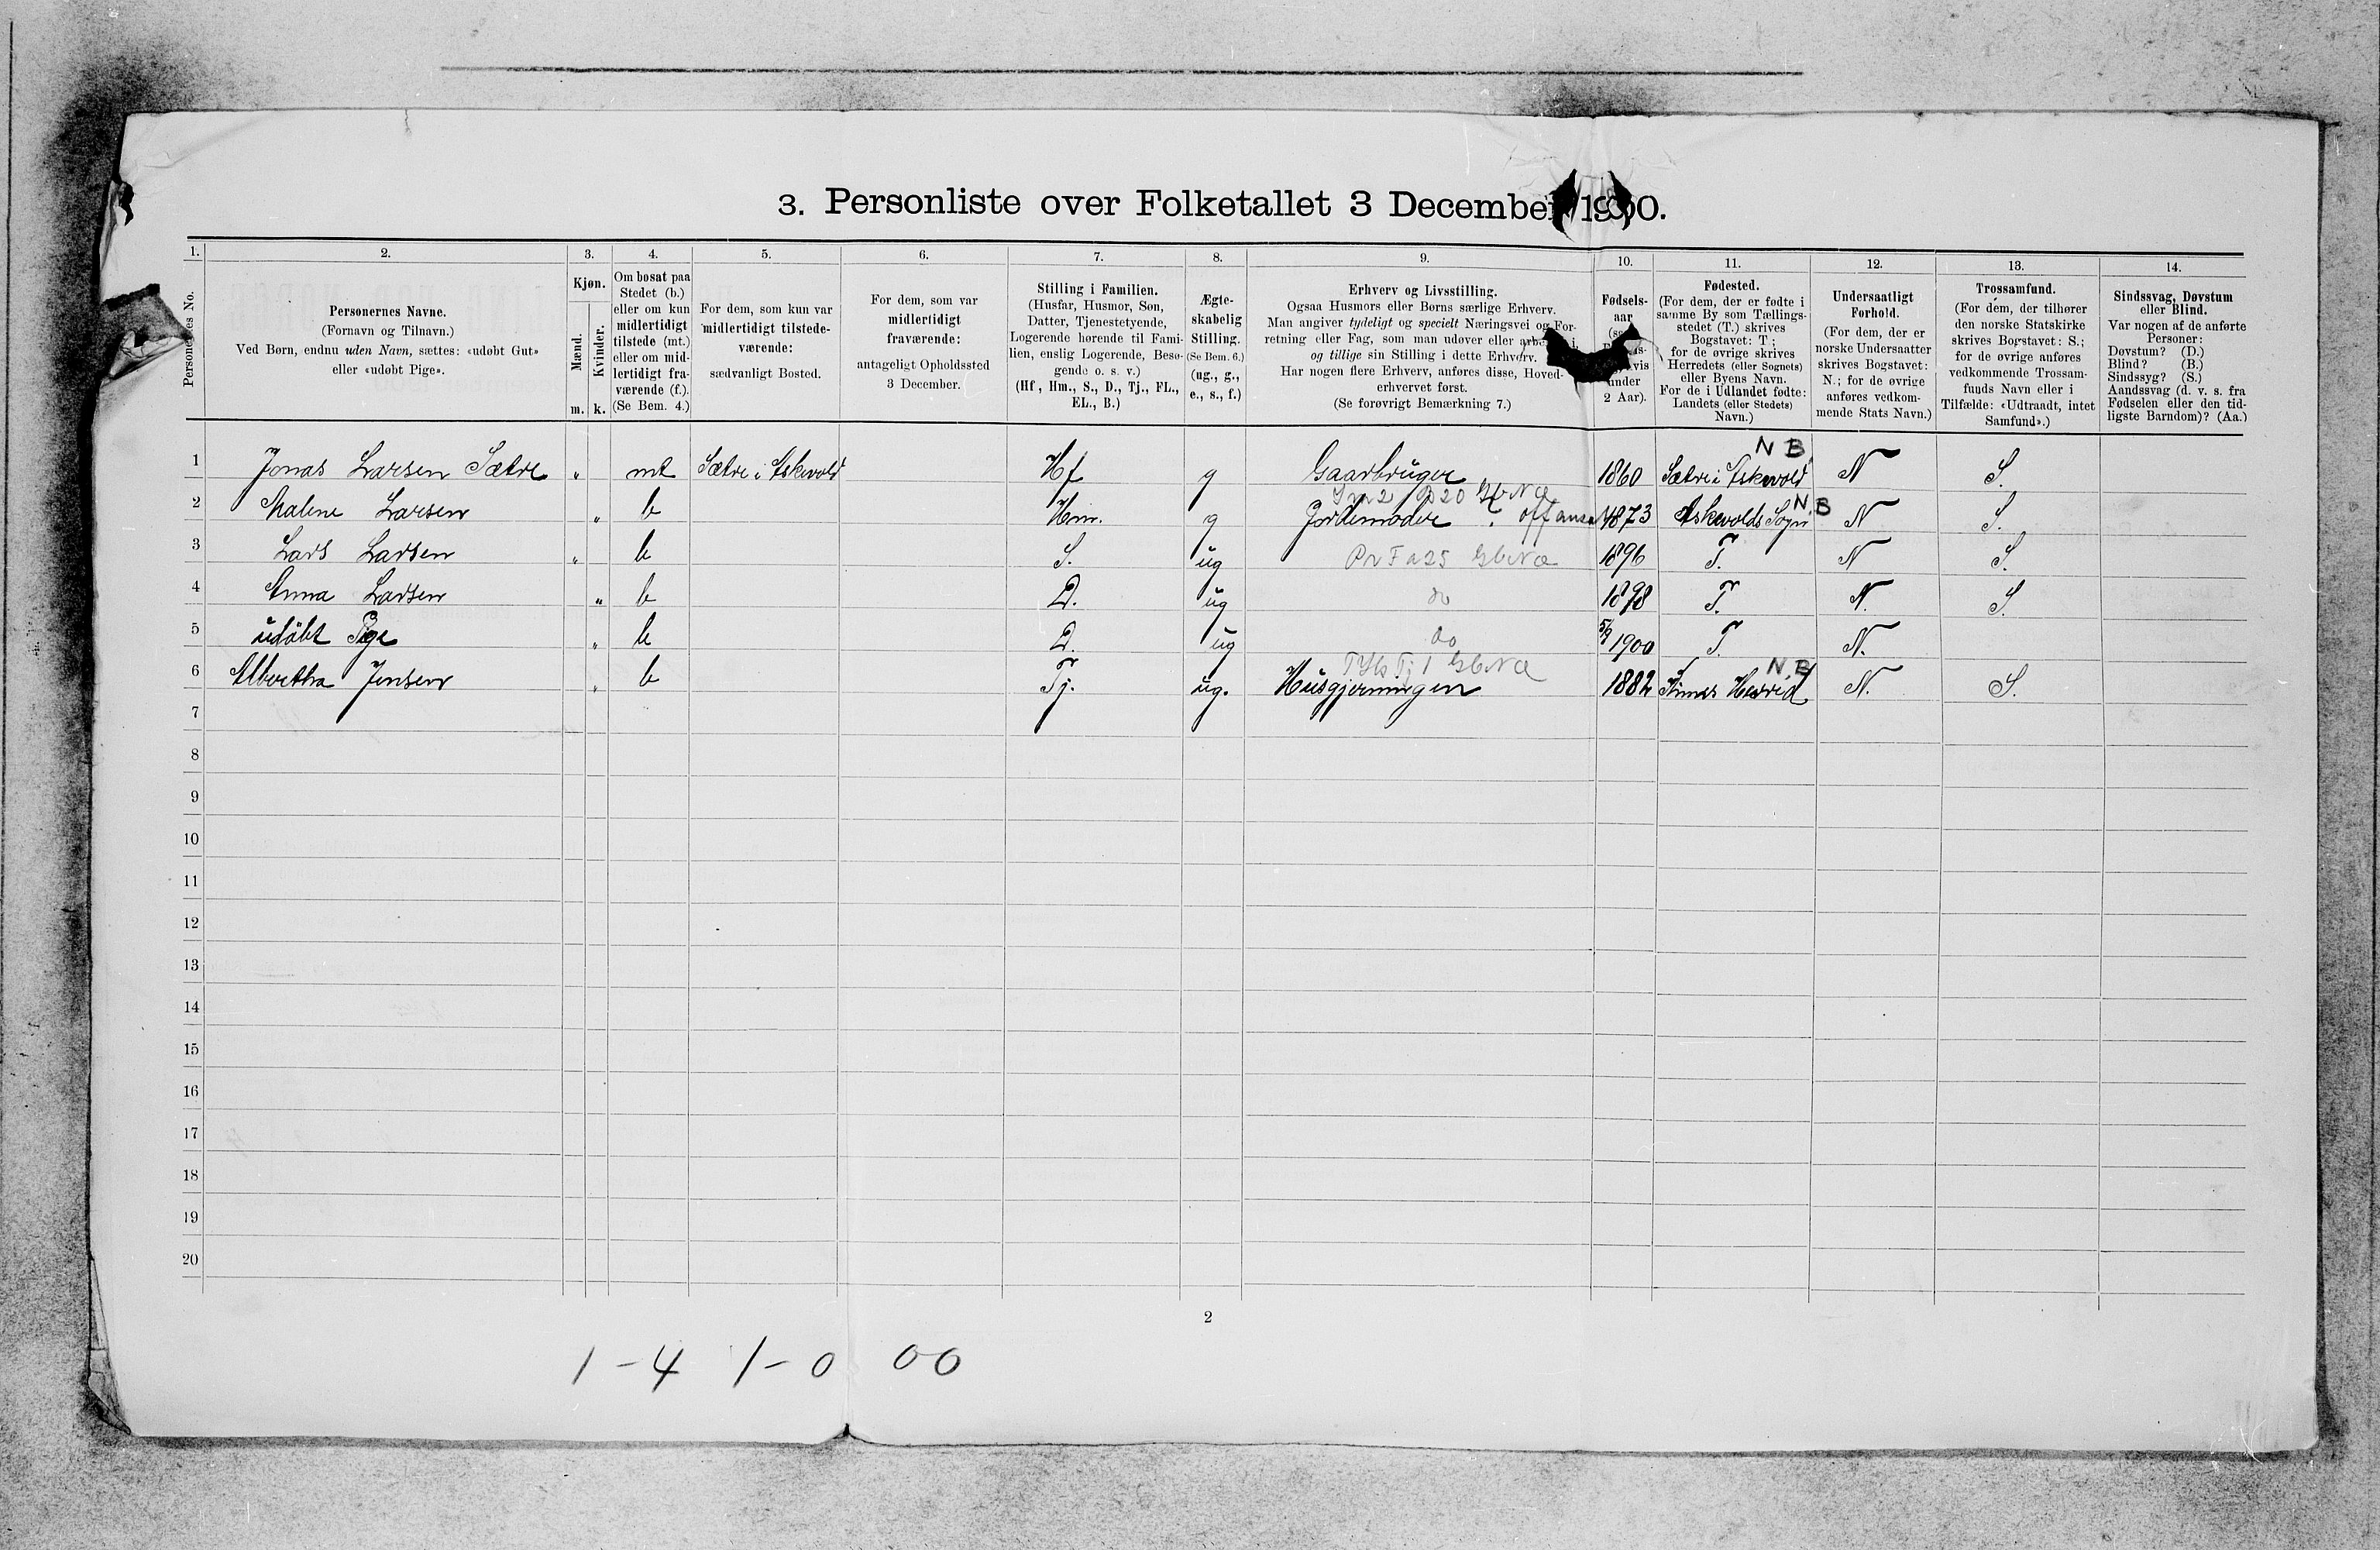 3. Personliste over Folketallet 3 December 1900.
1. 2. 3. 4. 5. 6. 7. 8. 9. 10. 11. 12. 13. 14.
Personernes No.
Personernes Navne.
(Fornavn og Tilnavn.)
Ved Børn, endnu uden Navn, sættes: «udøbt Gut»
eller «udøbt Pige».
Kjøn.
Mænd.
Kvinder.
m. k.
Om bosat paa
Stedet (b.)
eller om kun
midlertidigt
tilstede (mt.)
eller om mid-
lertidigt fra-
værende (f.).
(Se Bem. 4.)
For dem, som kun var
midlertidigt tilstede-
værende:
sædvanligt Bosted.
For dem, som var
midlertidigt
fraværende:
antageligt Opholdssted
3 December.
Stilling i Familien.
(Husfar, Husmor, Søn,
Datter, Tjenestetyende,
Logerende hørende til Fami-
lien, enslig Logerende, Besø-
gende o. s. v.)
(Hf, Hm., S., D., Tj., FL.,
EL., B.)
Ægte-
skabelig
Stilling.
(Se Bem. 6.)
(ug., g.,
e., s., f.)
Erhverv og Livsstilling.
Ogsaa Husmors eller Børns særlige Erhverv.
Man angiver tydeligt og specielt Næringsvei og For-
retning eller Fag, som man udøver eller arbeider i,
og tillige sin Stilling i dette Erhverv.
Har nogen flere Erhverv, anføres disse, Hoved-
erhvervet først.
(Se forøvrigt Bemærkning 7.)
Fødsels-
aar
under
2 Aar).
Fødested.
(For dem, der er fødte i
samme By som Tællings-
stedet (T.) skrives
Bogstavet: T;
for de øvrige skrives
Herredets (eller Sognets)
eller Byens Navn.
For de i Udlandet fødte:
Landets (eller Stedets)
Navn.)
Undersaatligt
Forhold.
(For dem, der er
norske Undersaatter
skrives Bogstavet:
N.; for de øvrige
anføres vedkom-
mende Stats Navn.)
Trossamfund.
(For dem, der tilhører
den norske Statskirke
skrives Bogstavet: S.;
for de øvrige anføres
vedkommende Trossam-
funds Navn eller i
Tilfælde: «Udtraadt, intet
Samfund».)
Sindssvag, Døvstum
eller Blind.
Var nogen af de anførte
Personer:
Døvstum? (D.)
Blind? (B.)
Sindssyg? (S.)
Aandssvag (d. v. s. fra
Fødselen eller den tid-
ligste Barndom)? (Aa.)
N B
1 Jonas Larsen Sætre " mt Sætre i Askevold Hf g Gaarbruger 1860 Sætre i Askevold N S.
N B
2 Malene Larsen " b Hm. g Jordemoder 1873 Askevolds Sogn N S.
3 Lars Larsen " b S. ug 1896 T. N S.
4 Anna Larsen " b D. ug do 1898 T. N. S.
5 udøbt Pige " b D. ug do 5/9 1900 T. N.
N B
6 Albertha Jensen " b Tj. ug. Husgjerningen 1882 Kinns Herred N. S.
7
8
9
10
11
12
13
14
15
16
17
18
19
20
2
1 - 4 1 - 0 0 0